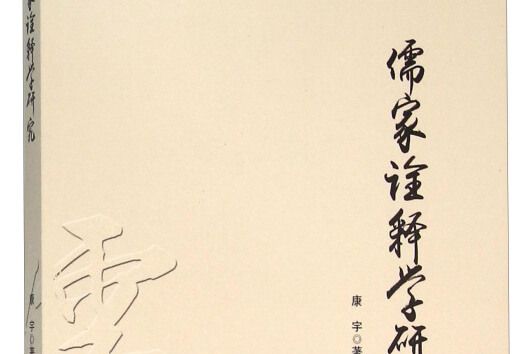 儒家诠释学研
康 宇◎著
家诠释学研究
康 宇◎著